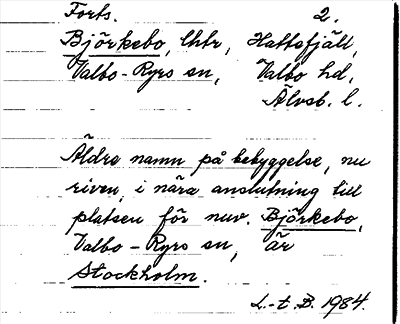 Forts. 2.
Björkebo, lhtr, Hattefjäll,
Valbo-Ryrs sn, Valbo hd,
Älvsb. l.
Äldre namn på bebyggelse, nu
riven, i nära anslutning till
platsen för nuv. Björkebo,
Valbo-Ryrs sn, är
Stockholm.
L.-t. B. 1984.